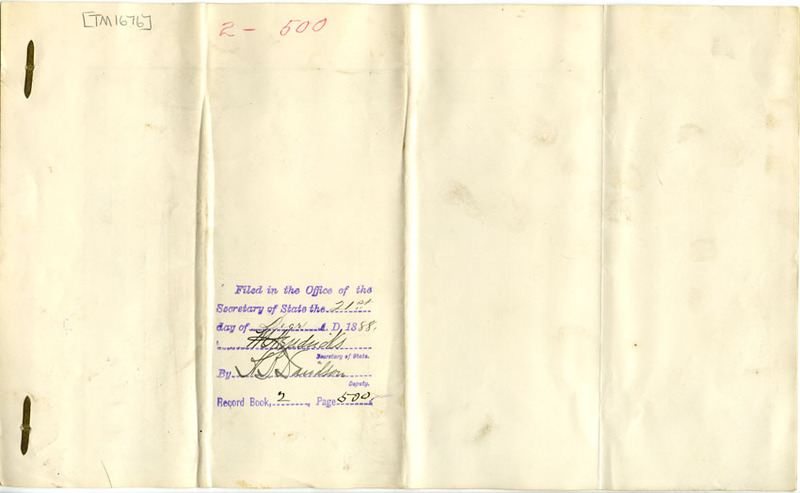 [TM1676]
2 - 500
Filed in the Office of the
Secretary of State the 21st
day of A.D, 1888.
Hendricks
Secretary of State.
By Davidson
Deputy.
Record Book, 2, Page 500